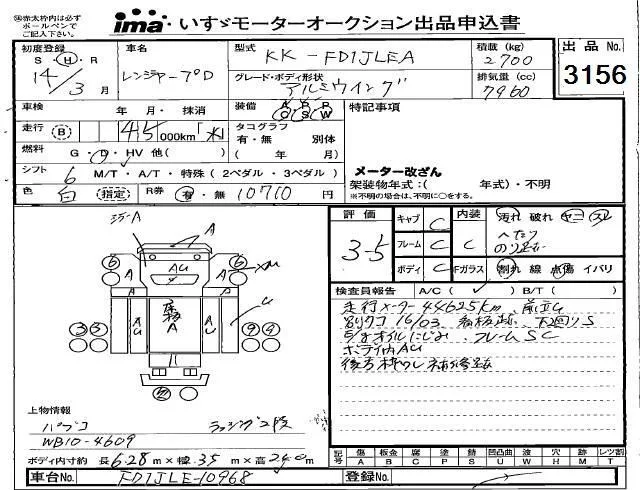 ※赤太枠内は必ず
ボールペンで
ご記入下さい。
ima いすゞモーターオークション出品申込書
初度登録
S・H・R
14/3月
車名
レンジャープロ
型式
KK-FD1JLEA
積載(kg)
2700
出品No.
3156
グレード・ボディ形状
アルミウイング
排気量(cc)
7960
車検 年・月・抹消
装備
特記事項
走行 B 45 000km
タコグラフ
有・無 別体
( 年 月)
燃料 G・D・HV 他( )
シフト 6 M/T・A/T・特殊(2ペダル・3ペダル)
メーター改ざん
架装物年式:( 年式)・不明
※不明の場合は、不明に○をする。
色 白 (指定) R券 有・無 10710 円
評価
3-5
キャブ C
フレーム C
ボディ C
内装
C
Fガラス
汚れ 破れ ヤニ スレ
へたり
割れ 線 点傷 イバリ
検査員報告 A/C( ✓ ) B/T( )
走行メーター44625km
別タコ 16/03 看板跡 下廻りS
E/gオイルにじみ フレームSC
ボディ内AU
後方枠ワレ 補修跡
3方-A
A
6 A AU A 6
看板
A
AU AU
U
上物情報
パブコ
WB10-4609
ラッシング2段
ボディ内寸約 長6.28m×幅.35m×高24.0m
記号
傷 板金 腐 塗 錆 凹凸曲 波 穴 跡 レツ割
A B C P S U W H M T
車台No. FD1JLE-10968
登録No.